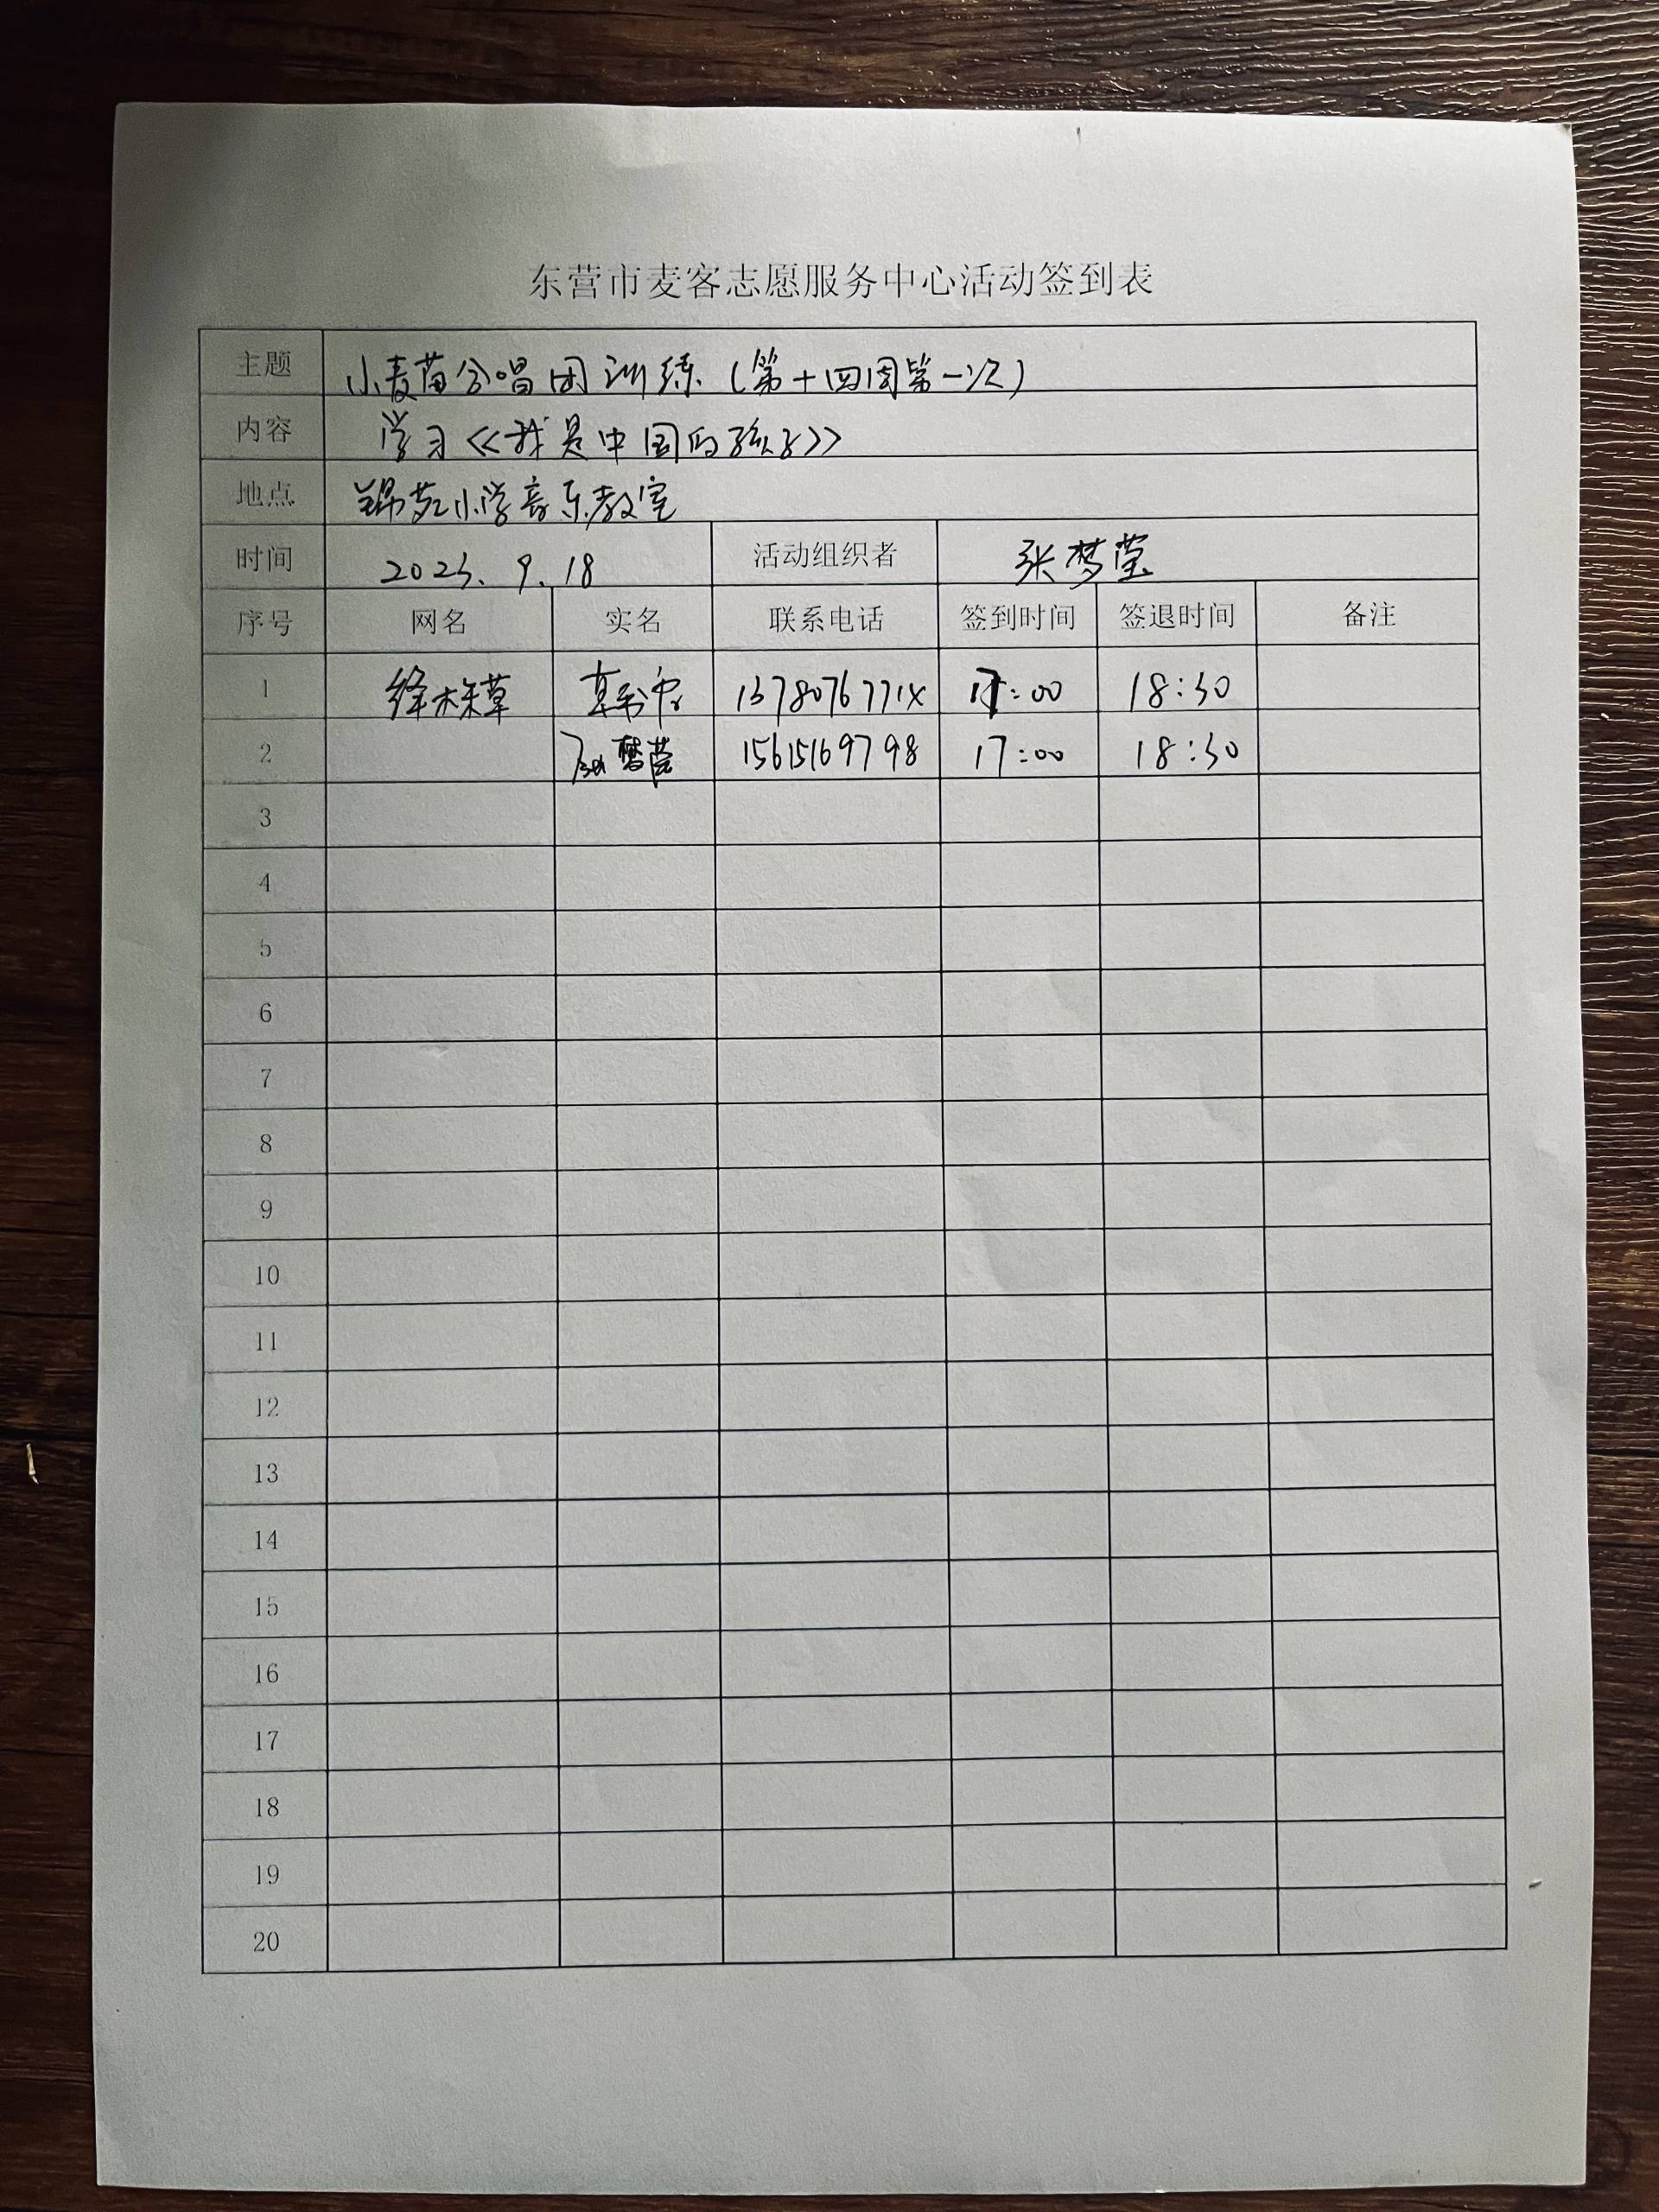 东营市麦客志愿服务中心活动签到表
主题 小麦苗合唱团训练(第十四周第一次)
内容 学习《我是中国的孩子》
地点 锦苑小学音乐教室
时间 2023.9.18 活动组织者 张梦莹
序号 网名 实名 联系电话 签到时间 签退时间 备注
1 绛株草 1378076771X 17:00 18:30
2 张梦莹 15615169798 17:00 18:30
3
4
5
6
7
8
9
10
11
12
13
14
15
16
17
18
19
20